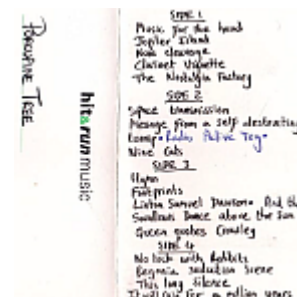 PORCUPINE TREE
hit&run music
SIDE 1
Music for the head
Jupiter Island
Nun cleavage
Clarinet Vignette
The Nostalgia Factory
SIDE 2
Space transmission
Message from a self destructing
Radio Active Toy
Nine Cats
SIDE 3
Hymn
Footprints
Linton Samuel Dawson And the
Swallows Dance above the Sun
Queen quotes Crowley
SIDE 4
No luck with Rabbits
Begonia Seduction Scene
This long Silence
It will rain for a million years